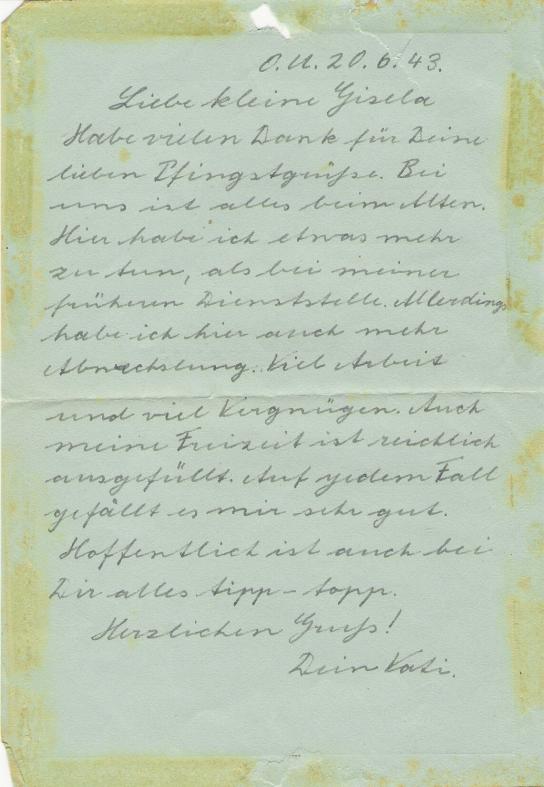 O.U. 20.6.43.
Liebe kleine Gisela
Habe vielen Dank für Deine
lieben Pfingstgrüße. Bei
uns ist alles beim Alten.
Hier habe ich etwas mehr
zu tun, als bei meiner
früheren Dienststelle. Allerdings
habe ich hier auch mehr
Abwechslung. Viel Arbeit
und viel Vergnügen. Auch
meine Freizeit ist reichlich
ausgefüllt. Auf jedem Fall
gefällt es mir sehr gut.
Hoffentlich ist auch bei
Dir alles tipp-topp.
Herzlichen Gruß!
Dein Vati.